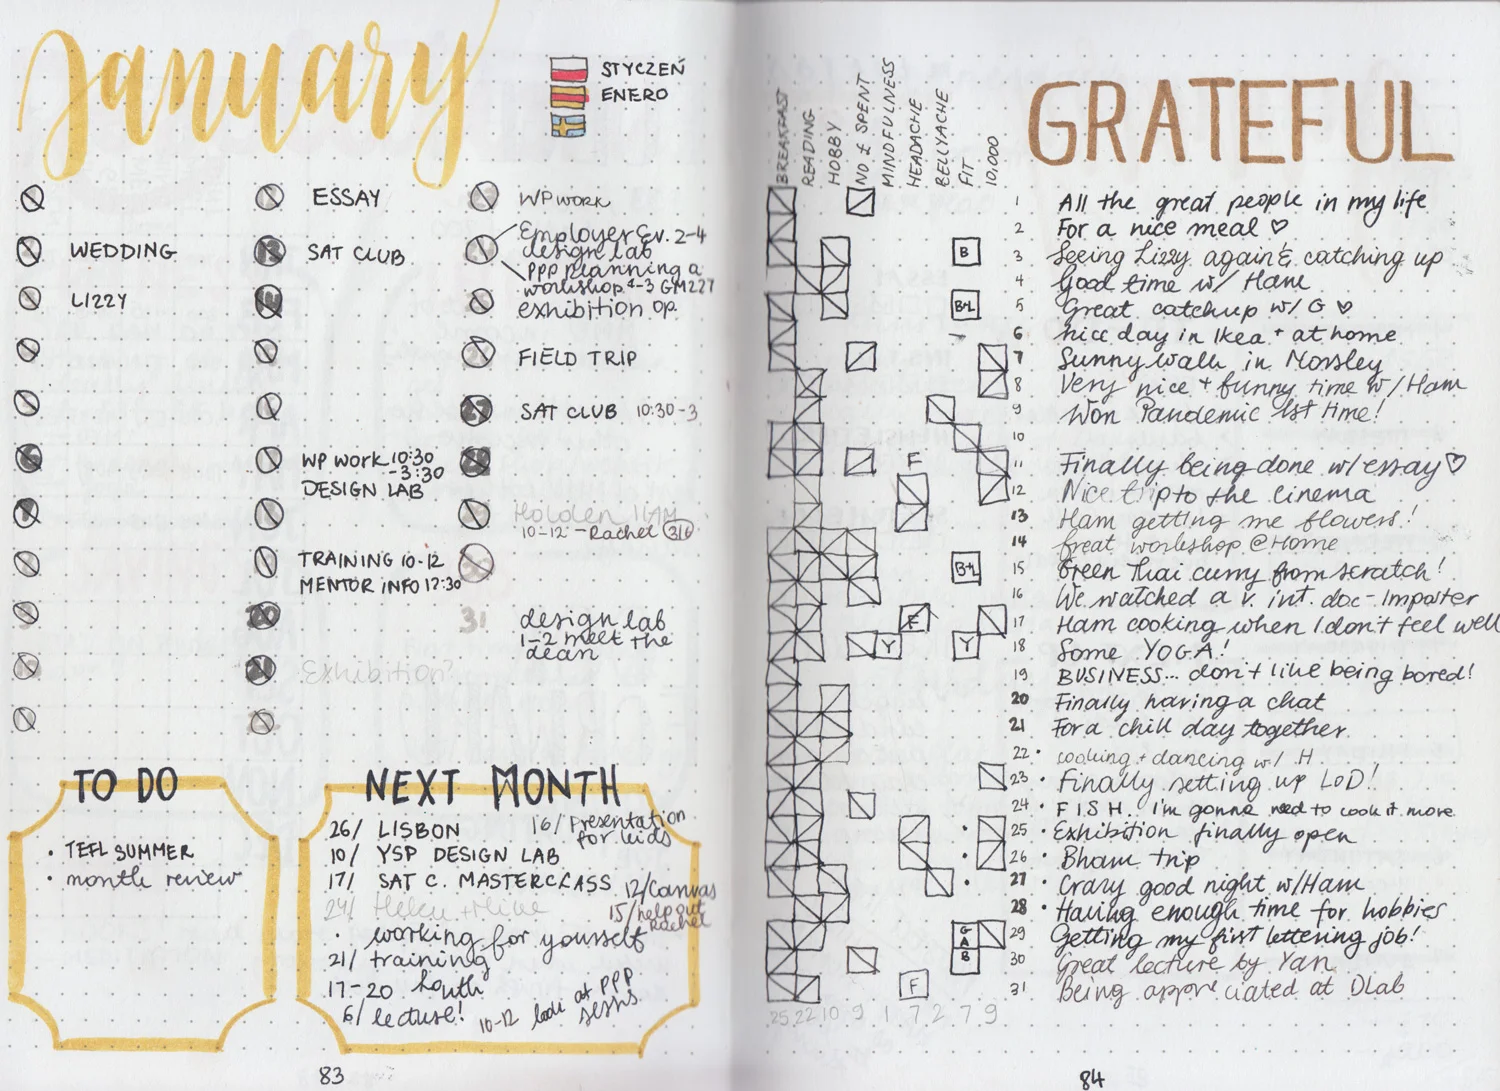 January
STYCZEŃ
ENERO
WEDDING
LIZZY
ESSAY
SAT CLUB
WP work 10:30
-3:30
DESIGN LAB
TRAINING 10-12
MENTOR INFO 17:30
Exhibition?
WP work
Employer Ev. 2-4
design lab
PPP planning a
workshop
exhibition op.
FIELD TRIP
SAT CLUB 10:30-3
Holden 11AM
10-12 - Rachel 316
31
design lab
1-2 meet the
dean
TO DO
• TEFL SUMMER
• month review
NEXT MONTH
26/ LISBON
16/ Presentation
for kids
10/ YSP DESIGN LAB
17/ SAT C. MASTERCLASS
12/Canvas
24/
15/help out
Rachel
• working for yourself
21/ training
17-20
6/ lecture!
10-12 look at PPP
83
BREAKFAST
READING
HOBBY
NO £ SPENT
MINDFULNESS
HEADACHE
BELLYACHE
FIT
10,000
GRATEFUL
1 All the great people in my life
2 For a nice meal ♡
B 3 Seeing Lizzy again & catching up
4 Good time w/ Ham
B+L 5 Great catchup w/ G ♡
6 nice day in Ikea + at home
7 Sunny walk in Mossley
8 Very nice + funny time w/ Ham
9 Won Pandemic 1st time!
10
F 11 Finally being done w/ essay ♡
12 Nice trip to the cinema
13 Ham getting me flowers!
14 Great workshop @Home
B+L 15 Green Thai curry from scratch!
16 We watched a v. int. doc - Imposter
F 17 Ham cooking when I don't feel well
Y Y 18 Some YOGA!
19 BUSINESS... don't like being bored!
20 Finally having a chat
21 For a chill day together
22 • cooking + dancing w/ H
23 • Finally setting up LoD!
24 • FISH. I'm gonna need to cook it more
25 • Exhibition finally open
26 • Bham trip
27 • Crazy good night w/Ham
28 • Having enough time for hobbies
G 29 Getting my first lettering job!
A
B 30 Great lecture by Yan
F 31 Being appreciated at DLab
25 22 10 9 1 7 2 7 9
84